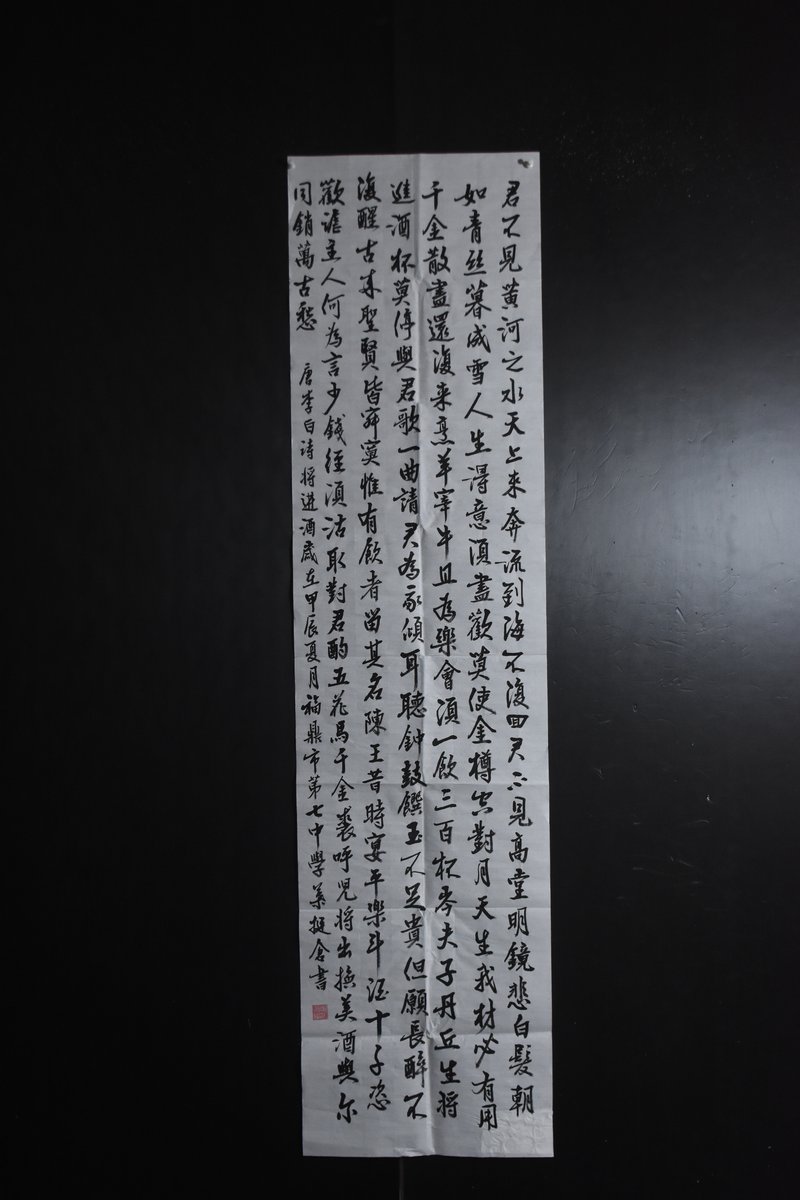 君不見黃河之水天上來奔流到海不復回君不見高堂明鏡悲白髮朝
如青絲暮成雪人生得意須盡歡莫使金樽空對月天生我材必有用
千金散盡還復來烹羊宰牛且為樂會須一飲三百杯岑夫子丹丘生將
進酒杯莫停與君歌一曲請君為我傾耳聽鐘鼓饌玉不足貴但願長醉不
復醒古來聖賢皆寂寞惟有飲者留其名陳王昔時宴平樂斗酒十千恣
歡謔主人何為言少錢徑須沽取對君酌五花馬千金裘呼兒將出換美酒與尔
同銷萬古愁
唐李白诗將进酒歲在甲辰夏月福鼎市第七中學葉挺倉書